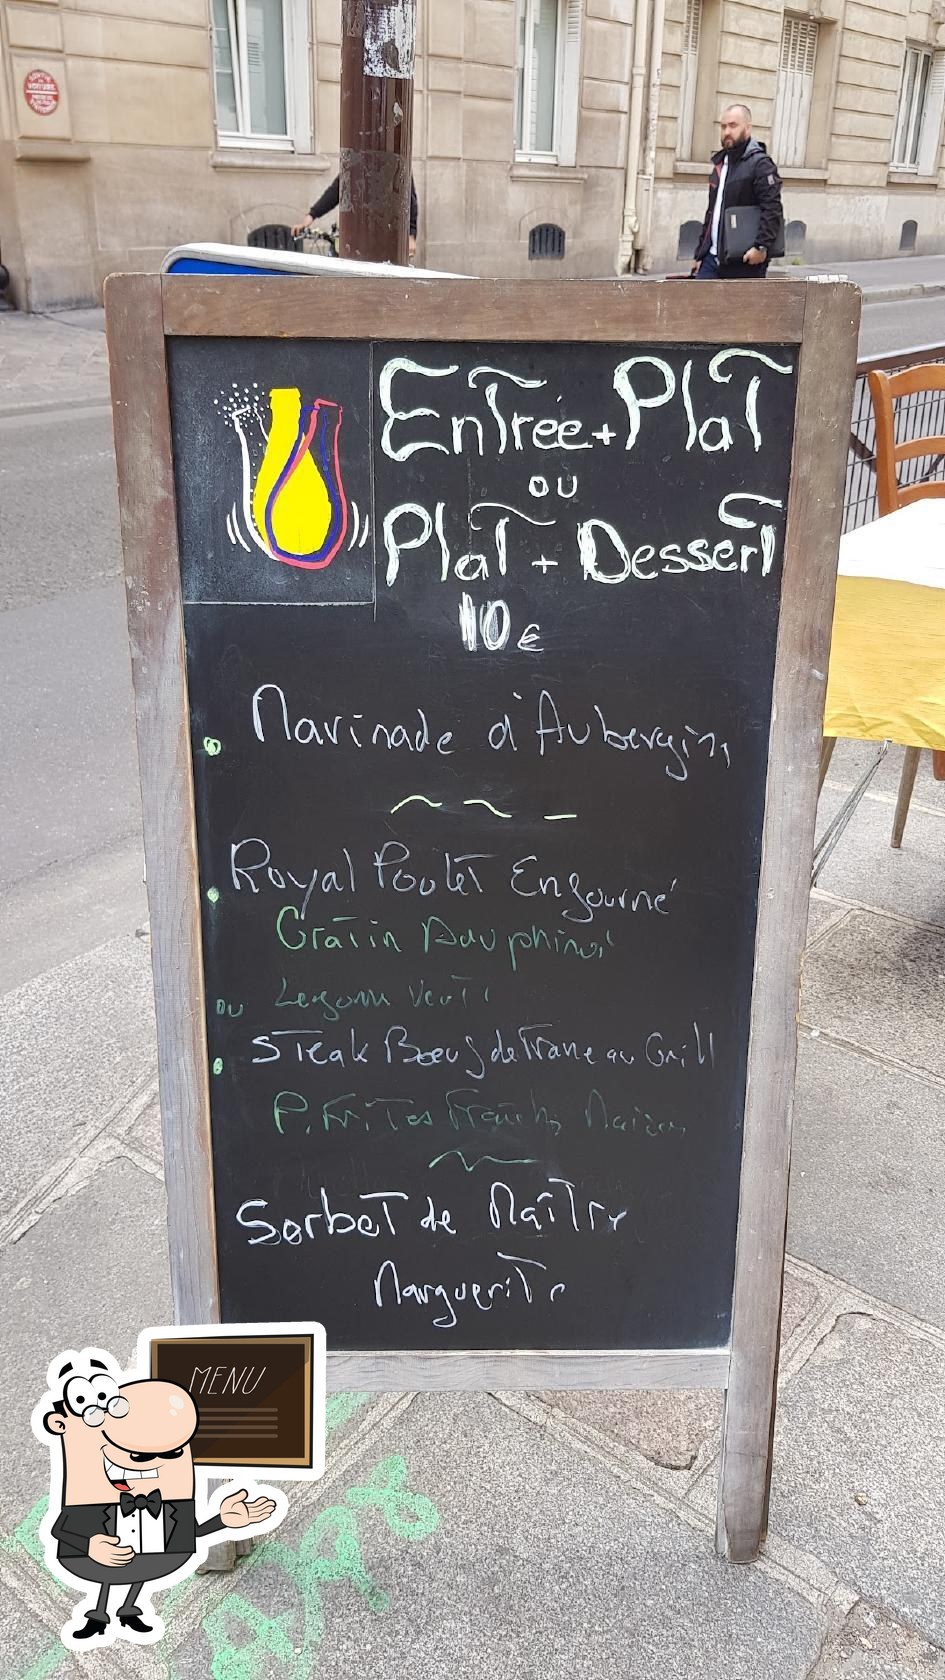 SORTIE
DE
VOITURE
Entrée+Plat
ou
Plat + Dessert
10€
Marinade d'Aubergine
Royal Poulet Enfourné
Gratin Dauphinoi
ou Legum Verts
Steak Bœuf de France au Grill
P. Frites Fraîches Maison
Sorbet de Maître
Marguerite
MENU